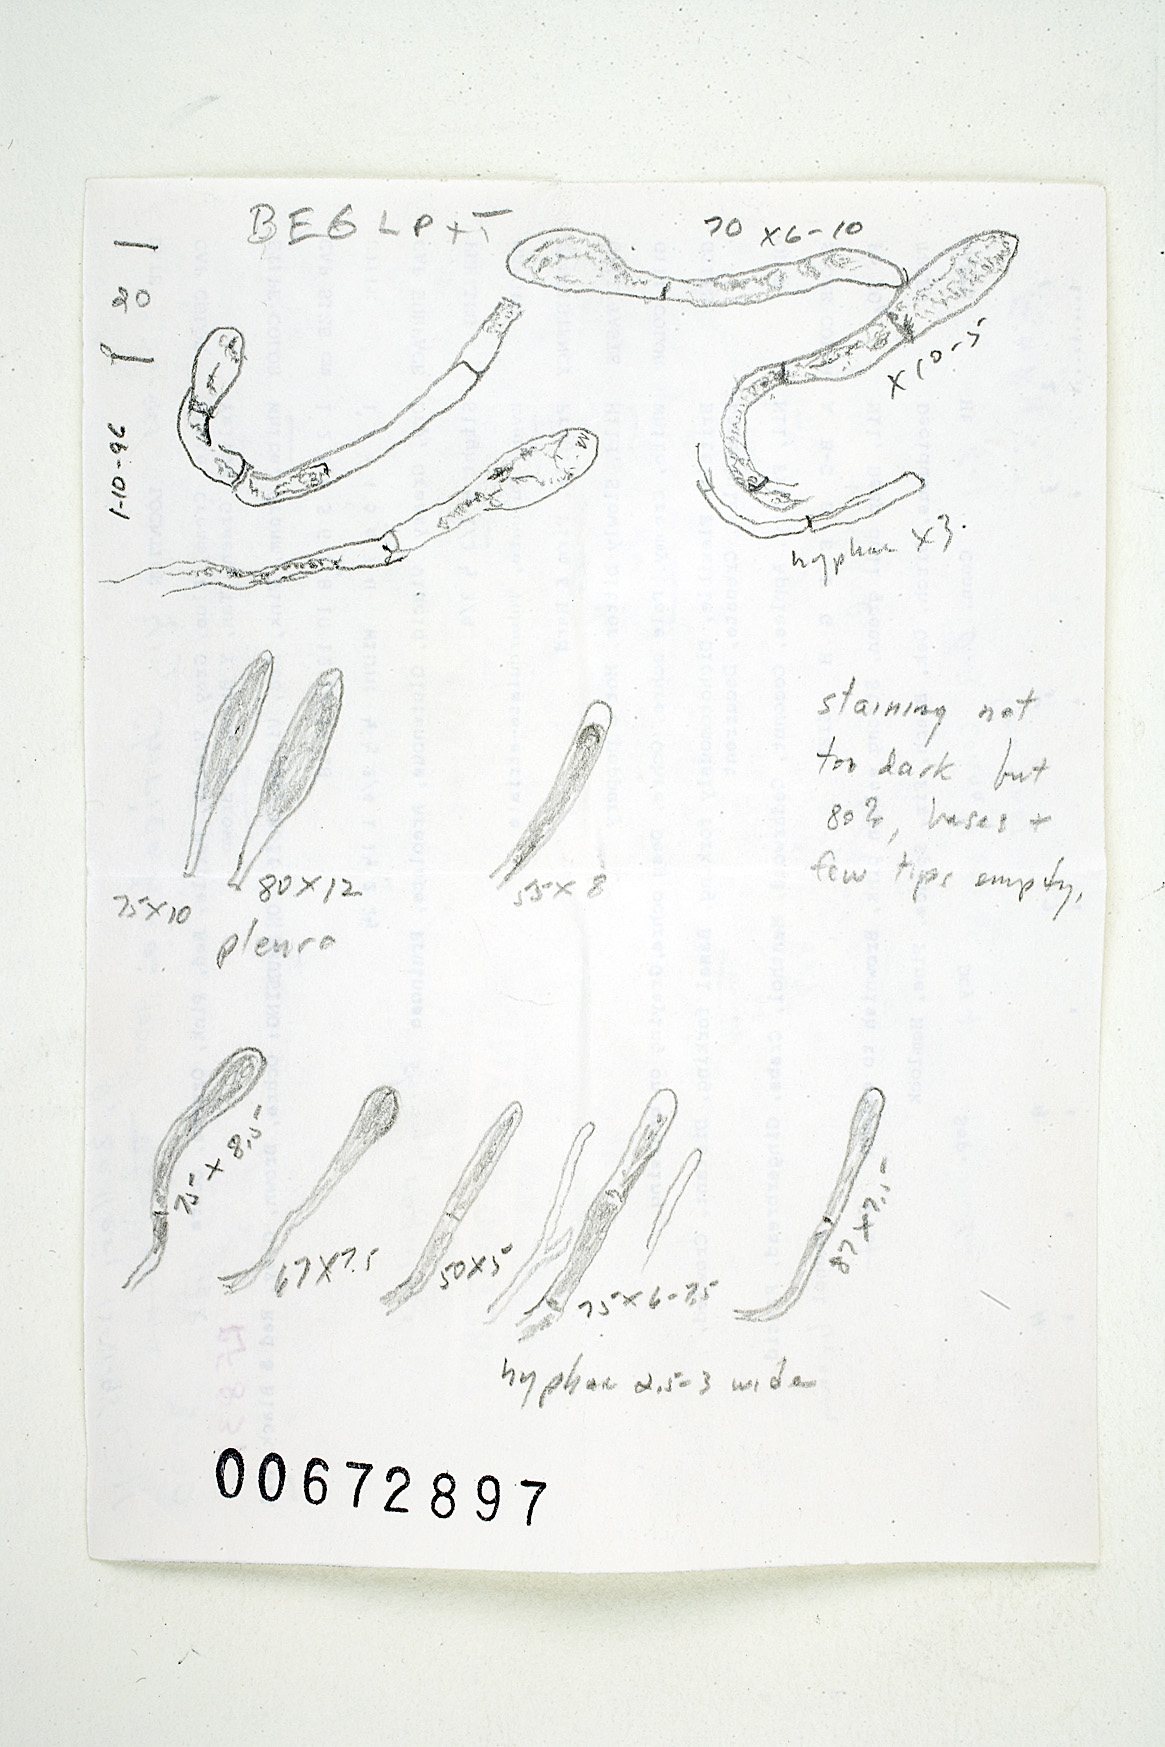 BE6 LP+T
70 x6-10
20
1-10-96
x10.5
hyphae x3.
staining not
too dark but
80%, bases +
few tips empty,
75x10
80x12
55x8
pleuro
75 x 8.5
67x7.5
50x5
75x6-7.5
87x7.5
hyphae 2.5-3 wide
00672897